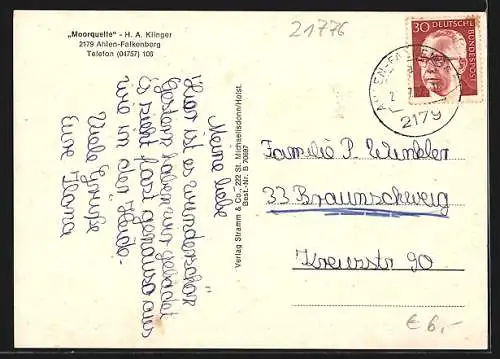 „Moorquelle" - H. A. Klinger
2179 Ahlen-Falkenberg
Telefon (04757) 106
21776
30 DEUTSCHE BUNDESPOST
2179
Meine liebe
Hier ist es wunderschön
Gestern haben wir gebadet
Es sieht fast genauso aus
wie in der Heide.
Viele Grüße
Eure Ilona
Verlag Stramm & Co., 222 St. Michaelisdonn/Holst.
Best.-Nr. B 70687
Familie P. Winkler
33 Braunschweig
Kreuzstr 90
€ 6,-